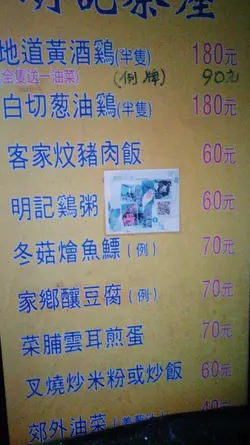 明記菜座
地道黃酒鷄(半隻) 180元
(全隻送一油菜) (例牌) 90元
白切葱油鷄(半隻) 180元
客家炆豬肉飯 60元
明記鷄粥 60元
冬菇燴魚鰾(例) 70元
家鄉釀豆腐(例) 70元
菜脯雲耳煎蛋 70元
叉燒炒米粉或炒飯 60元
郊外油菜